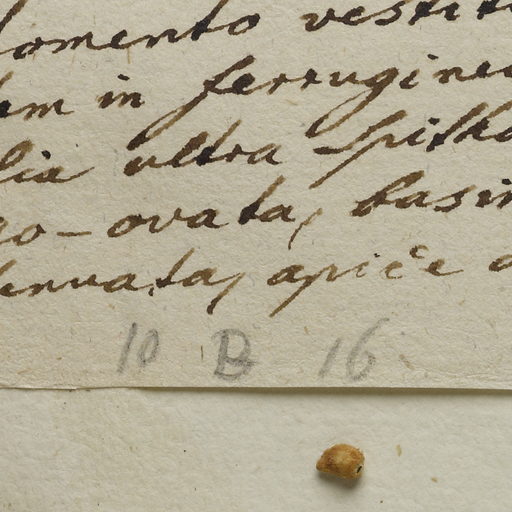 tomento vestit
in ferrugine
lia ultra spitha
go-ovata, basin
tenuata, apice
10 B 16